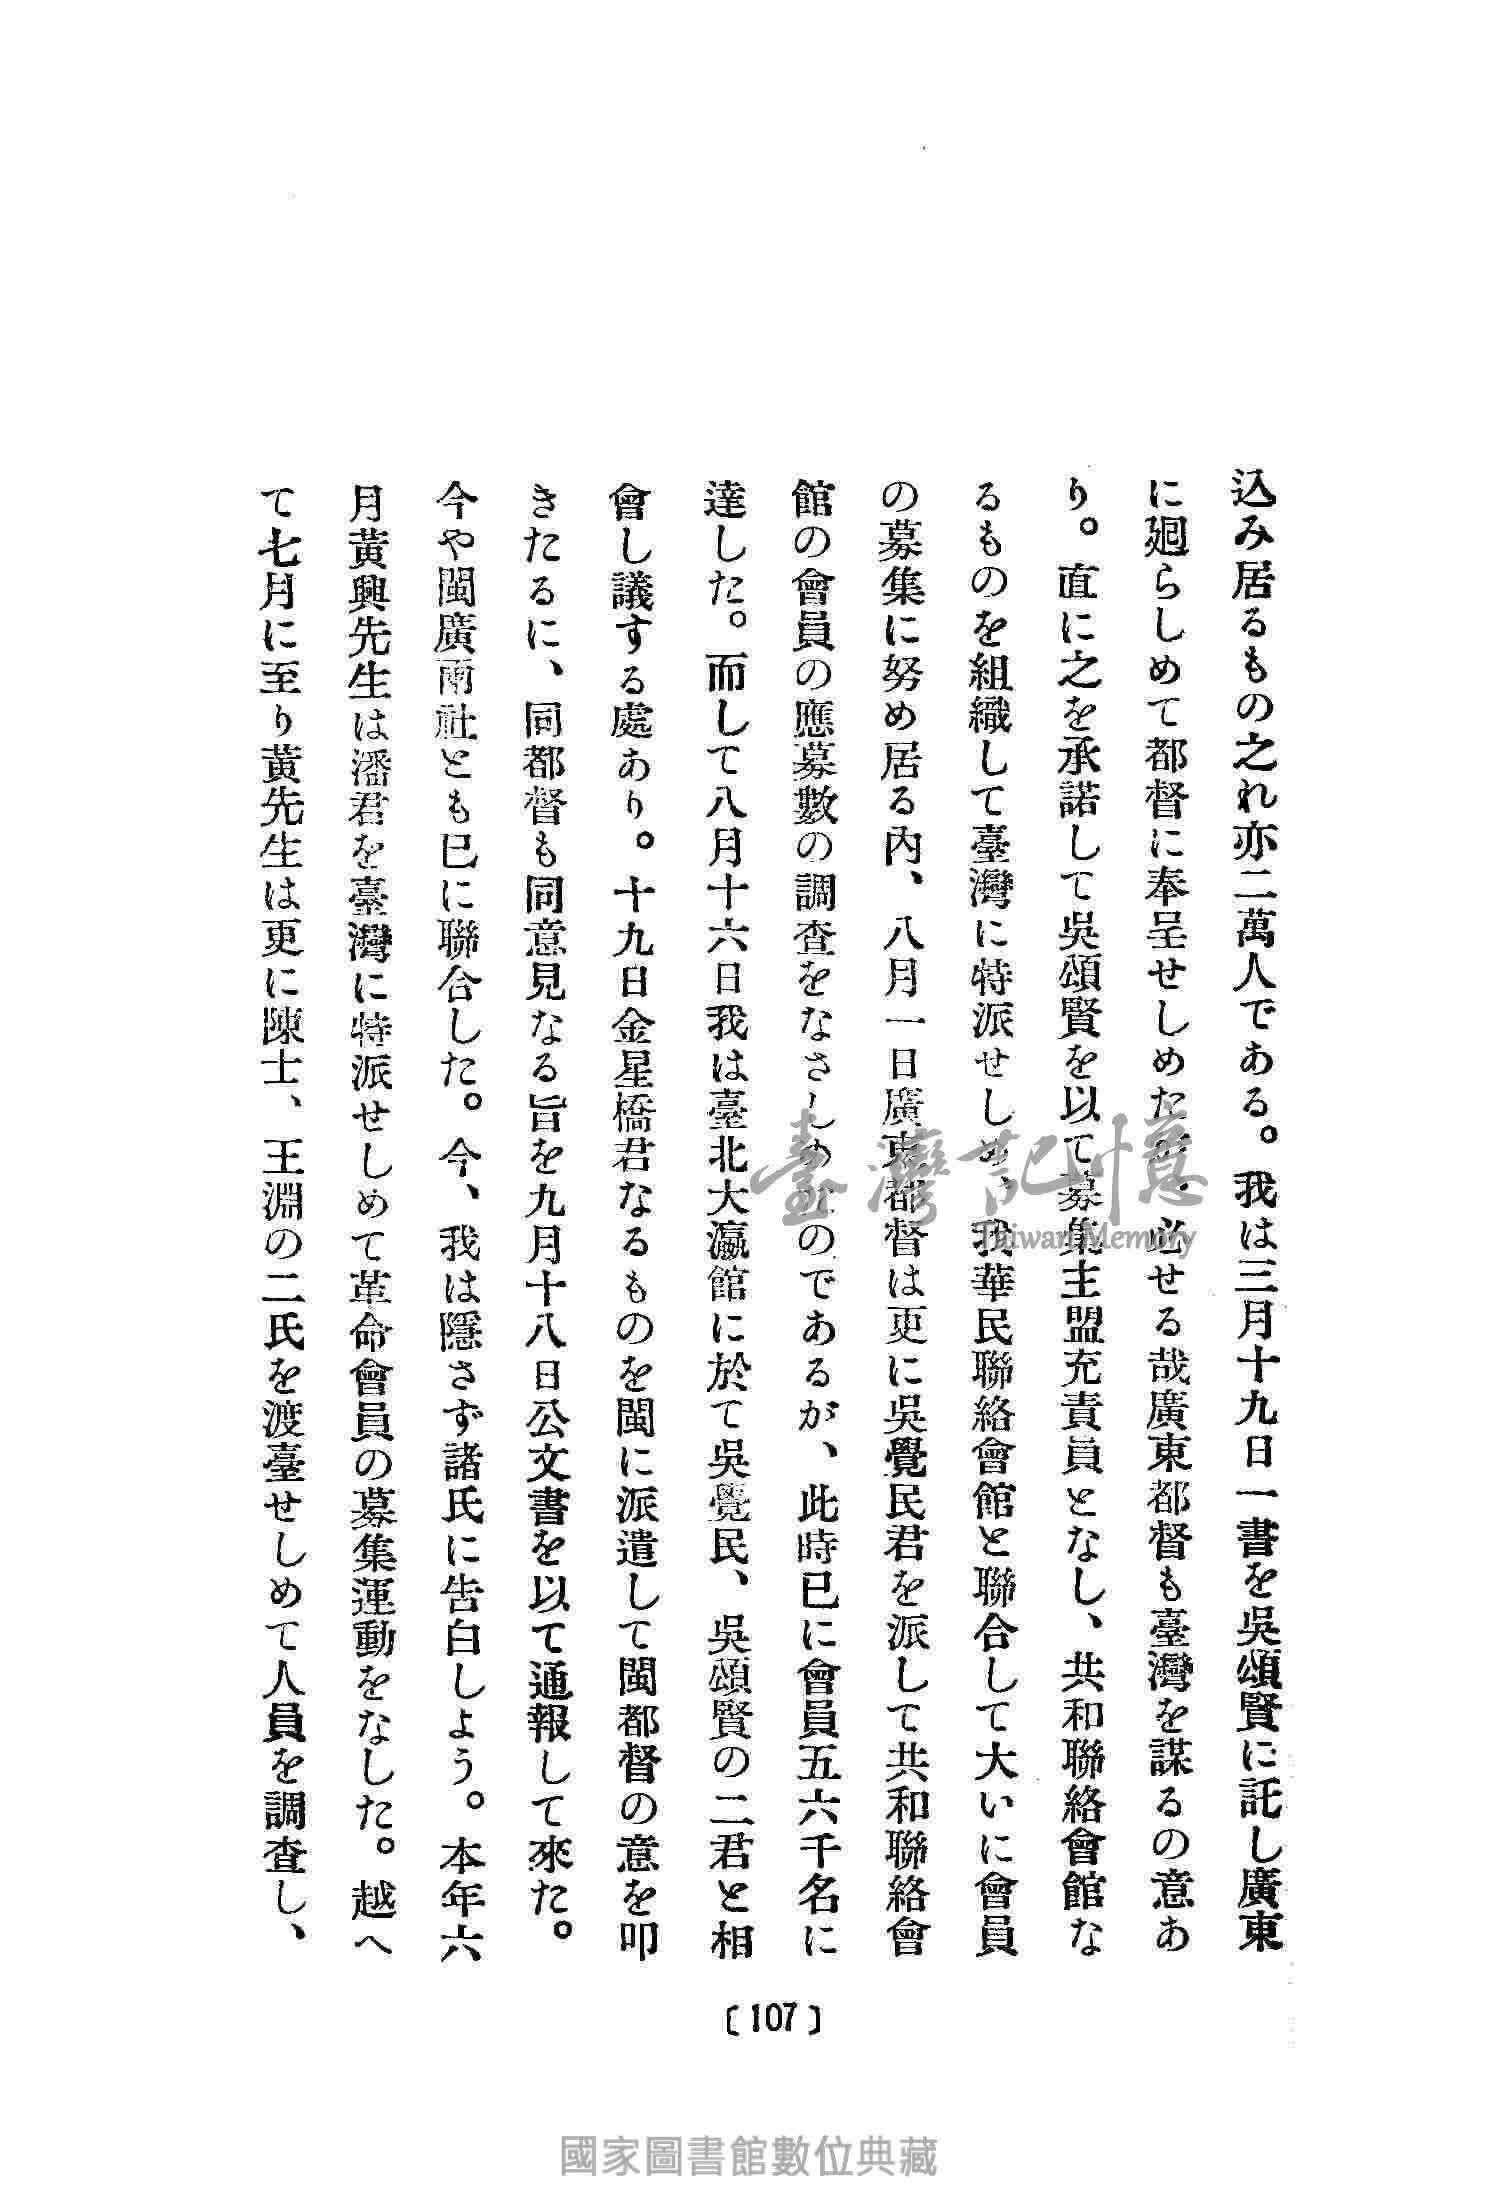 込み居るもの之れ亦二萬人である。我は三月十九日一書を吳頌賢に託し廣東
に廻らしめて都督に奉呈せしめた必せる哉廣東都督も臺灣を謀るの意あ
り。直に之を承諾して吳頌賢を以て募集主盟充責員となし、共和聯絡會館な
るものを組織して臺灣に特派せしめ、我華民聯絡會館と聯合して大いに會員
の募集に努め居る內、八月一日廣東都督は更に吳覺民君を派して共和聯絡會
館の會員の應募數の調査をなさしめたのであるが、此時已に會員五六千名に
達した。而して八月十六日我は臺北大瀛館に於て吳覺民、吳頌賢の二君と相
會し議する處あり。十九日金星橋君なるものを閩に派遣して閩都督の意を叩
きたるに、同都督も同意見なる旨を九月十八日公文書を以て通報して來た。
今や閩廣兩社とも已に聯合した。今、我は隱さず諸氏に告白しよう。本年六
月黃興先生は潘君を臺灣に特派せしめて革命會員の募集運動をなした。越へ
て七月に至り黃先生は更に陳士、王淵の二氏を渡臺せしめて人員を調査し、
〔107〕
臺灣記憶
Taiwan Memory
國家圖書館數位典藏